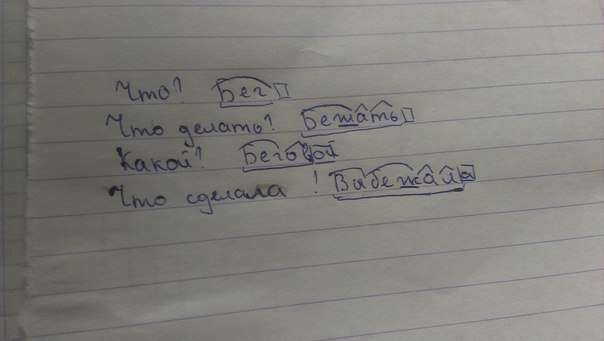 Что? Бег
Что делать? Бежать
Какой? Беговой
Что сделала ! Выбежала